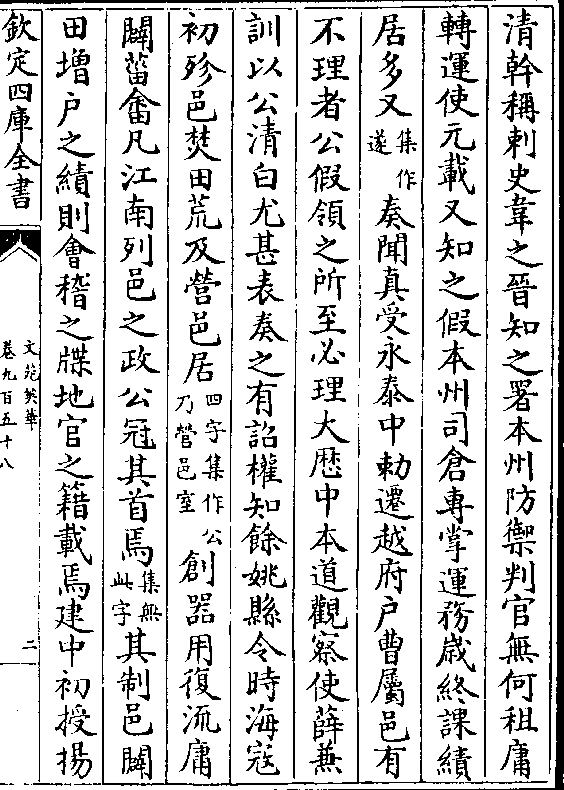 清幹稱刺史韋之晉知之署本州防禦判官無何租庸
轉運使元載又知之假本州司倉專掌運務歲終課績
居多又集作遂奏聞真受永泰中勅遷越府户曹屬邑有
不理者公假領之所至必理大厯中本道觀察使薛兼
訓以公清白尤甚表奏之有詔權知餘姚縣令時海寇
初殄邑焚田荒及營邑居四字集作乃營邑室公創器用復流庸
闢菑畬凡江南列邑之政公冠其首焉集無此字其制邑闢
田增户之績則會稽之牒地官之籍載焉建中初授揚
欽定四庫全書
文苑英華
卷九百五十八
二